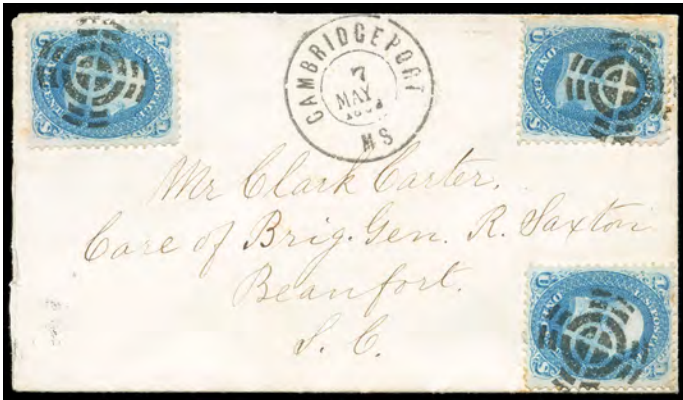 CAMBRIDGEPORT
7
MAY
MS
Mr Clark Carter.
Care of Brig. Gen. R. Saxton
Beaufort.
S. C.